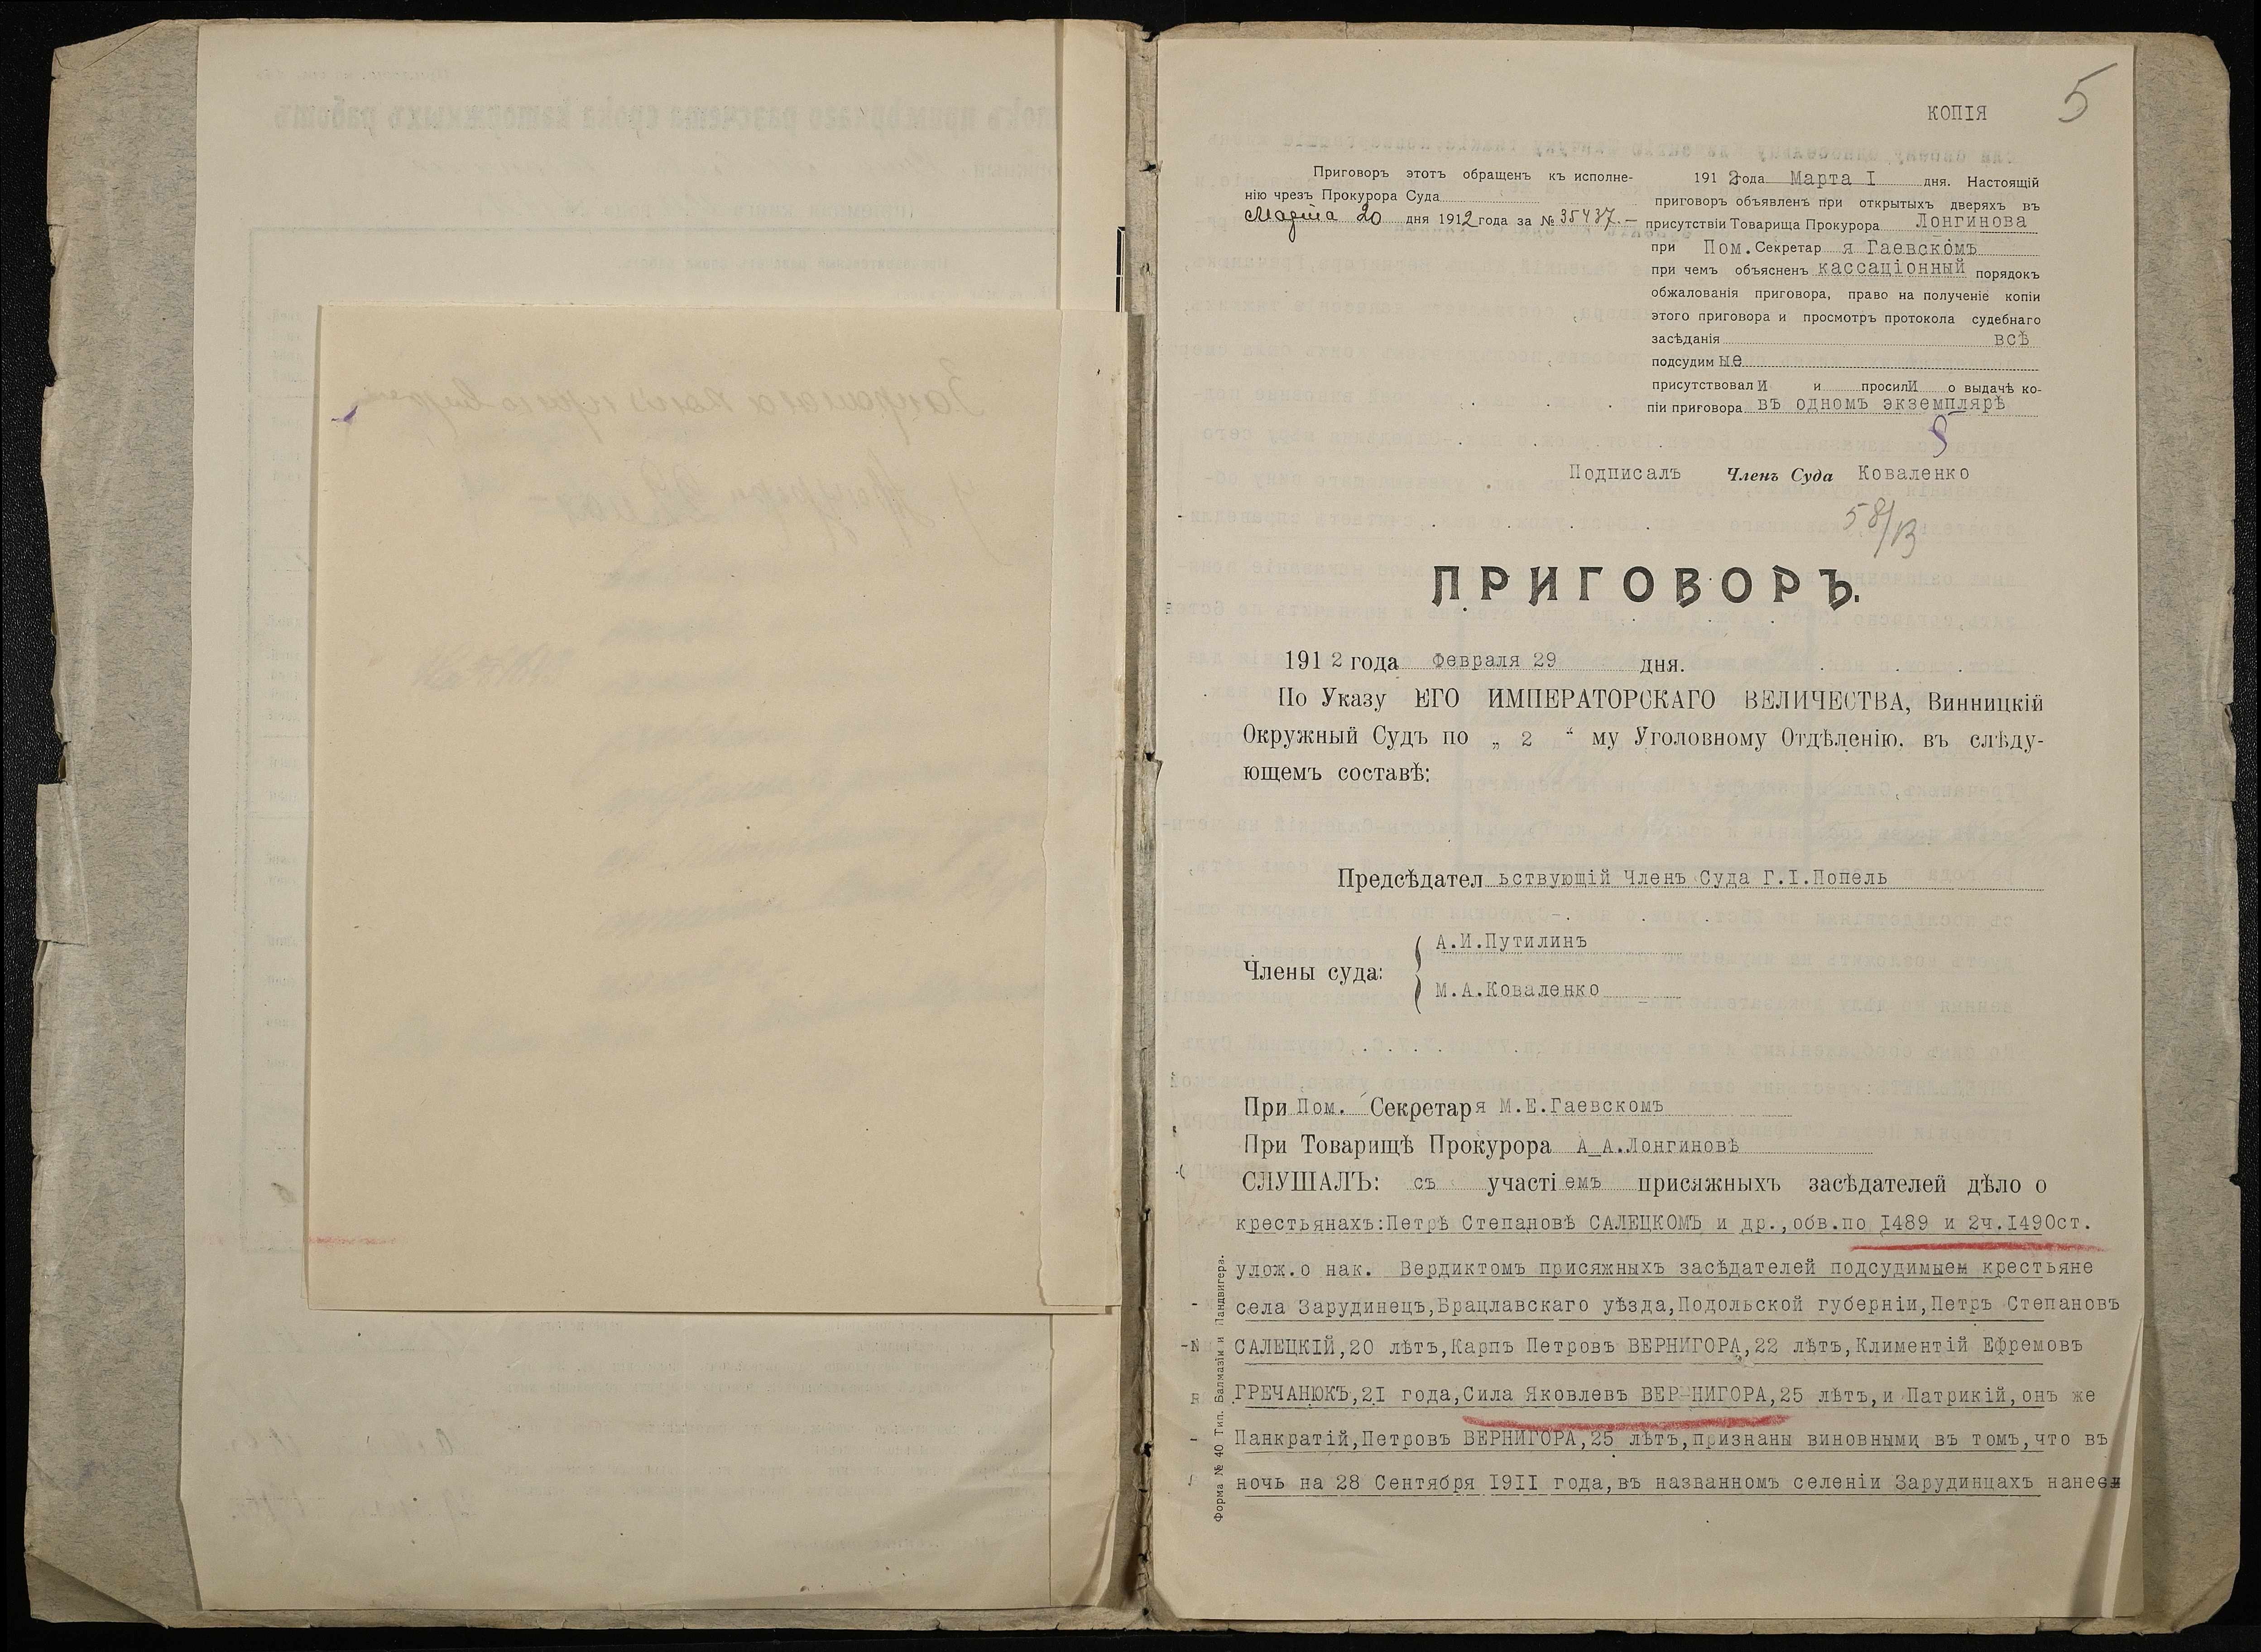 5
КОПІЯ
Приговоръ этотъ обращенъ къ исполне-
нію чрезъ Прокурора Суда
Марта 20 дня 1912 года за № 35437.—
1912 года Марта I дня. Настоящій
приговоръ объявленъ при открытыхъ дверяхъ въ
присутствіи Товарища Прокурора Лонгинова
при Пом. Секретаря Гаевскомъ
при чемъ объясненъ кассаціонный порядокъ
обжалованія приговора, право на полученіе копіи
этого приговора и просмотръ протокола судебнаго
засѣданія всѣ
подсудимые
присутствовали и просили о выдачѣ ко-
піи приговора въ одномъ экземплярѣ
Подписалъ Членъ Суда Коваленко
58/13
ПРИГОВОРЪ.
1912 года Февраля 29 дня.
По Указу ЕГО ИМПЕРАТОРСКАГО ВЕЛИЧЕСТВА, Винницкій
Окружный Судъ по „ 2 “ му Уголовному Отдѣленію, въ слѣду-
ющемъ составѣ:
Предсѣдательствующій Членъ Суда Г.І.Попель
Члены суда:
А.И.Путилинъ
М.А.Коваленко
При Пом. Секретаря М.Е.Гаевскомъ
При Товарищѣ Прокурора А_А.Лонгиновѣ
СЛУШАЛЪ: съ участіемъ присяжныхъ засѣдателей дѣло о
крестьянахъ:Петрѣ Степановѣ САЛЕЦКОМЪ и др.,обв.по I489 и 2ч.I490ст.
улож.о нак. Вердиктомъ присяжныхъ засѣдателей подсудимыем крестьяне
села Зарудинецъ,Брацлавскаго уѣзда,Подольской губерніи,Петръ Степановъ
САЛЕЦКІЙ,20 лѣтъ,Карпъ Петровъ ВЕРНИГОРА,22 лѣтъ,Климентій Ефремовъ
ГРЕЧАНЮКЪ,2I года,Сила Яковлевъ ВЕР-НИГОРА,25 лѣтъ,и Патрикій,онъ же
Панкратій,Петровъ ВЕРНИГОРА,25 лѣтъ,признаны виновными въ томъ,что въ
ночь на 28 Сентября I9II года,въ названномъ селеніи Зарудинцахъ нанесли
Форма № 40 Тип. Балмазіи и Ландвигера.